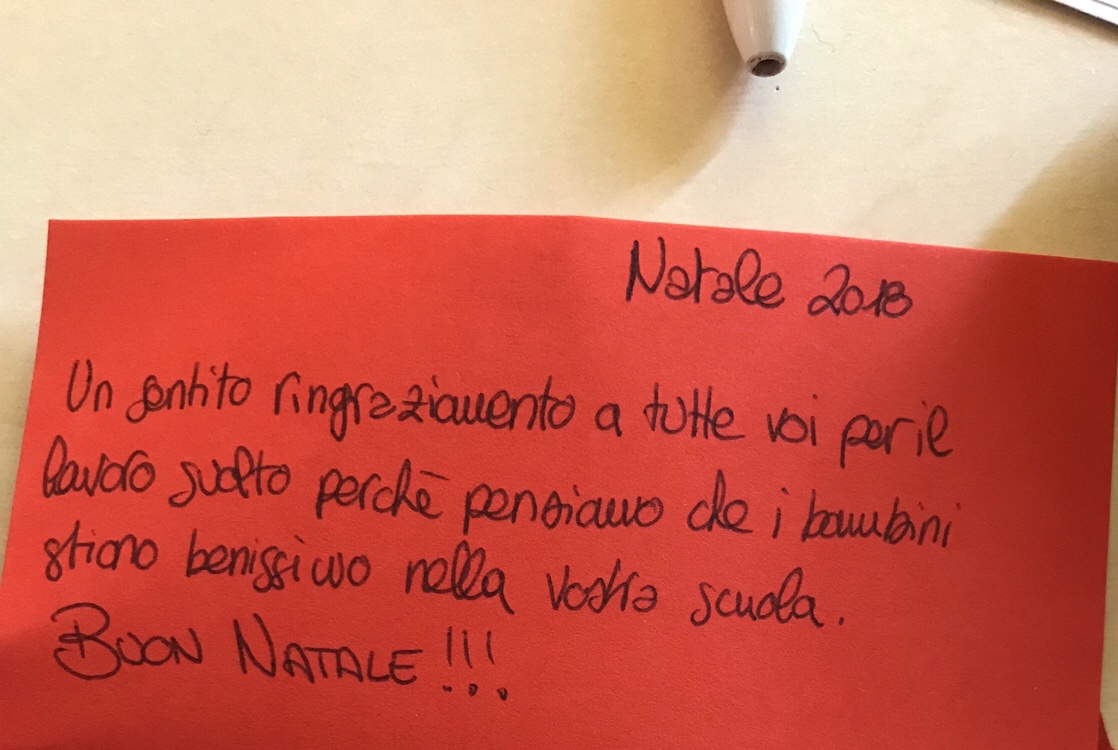 Natale 2018
Un sentito ringraziamento a tutte voi per il
lavoro svolto perchè pensiamo che i bambini
stiano benissimo nella vostra scuola.
BUON NATALE!!!